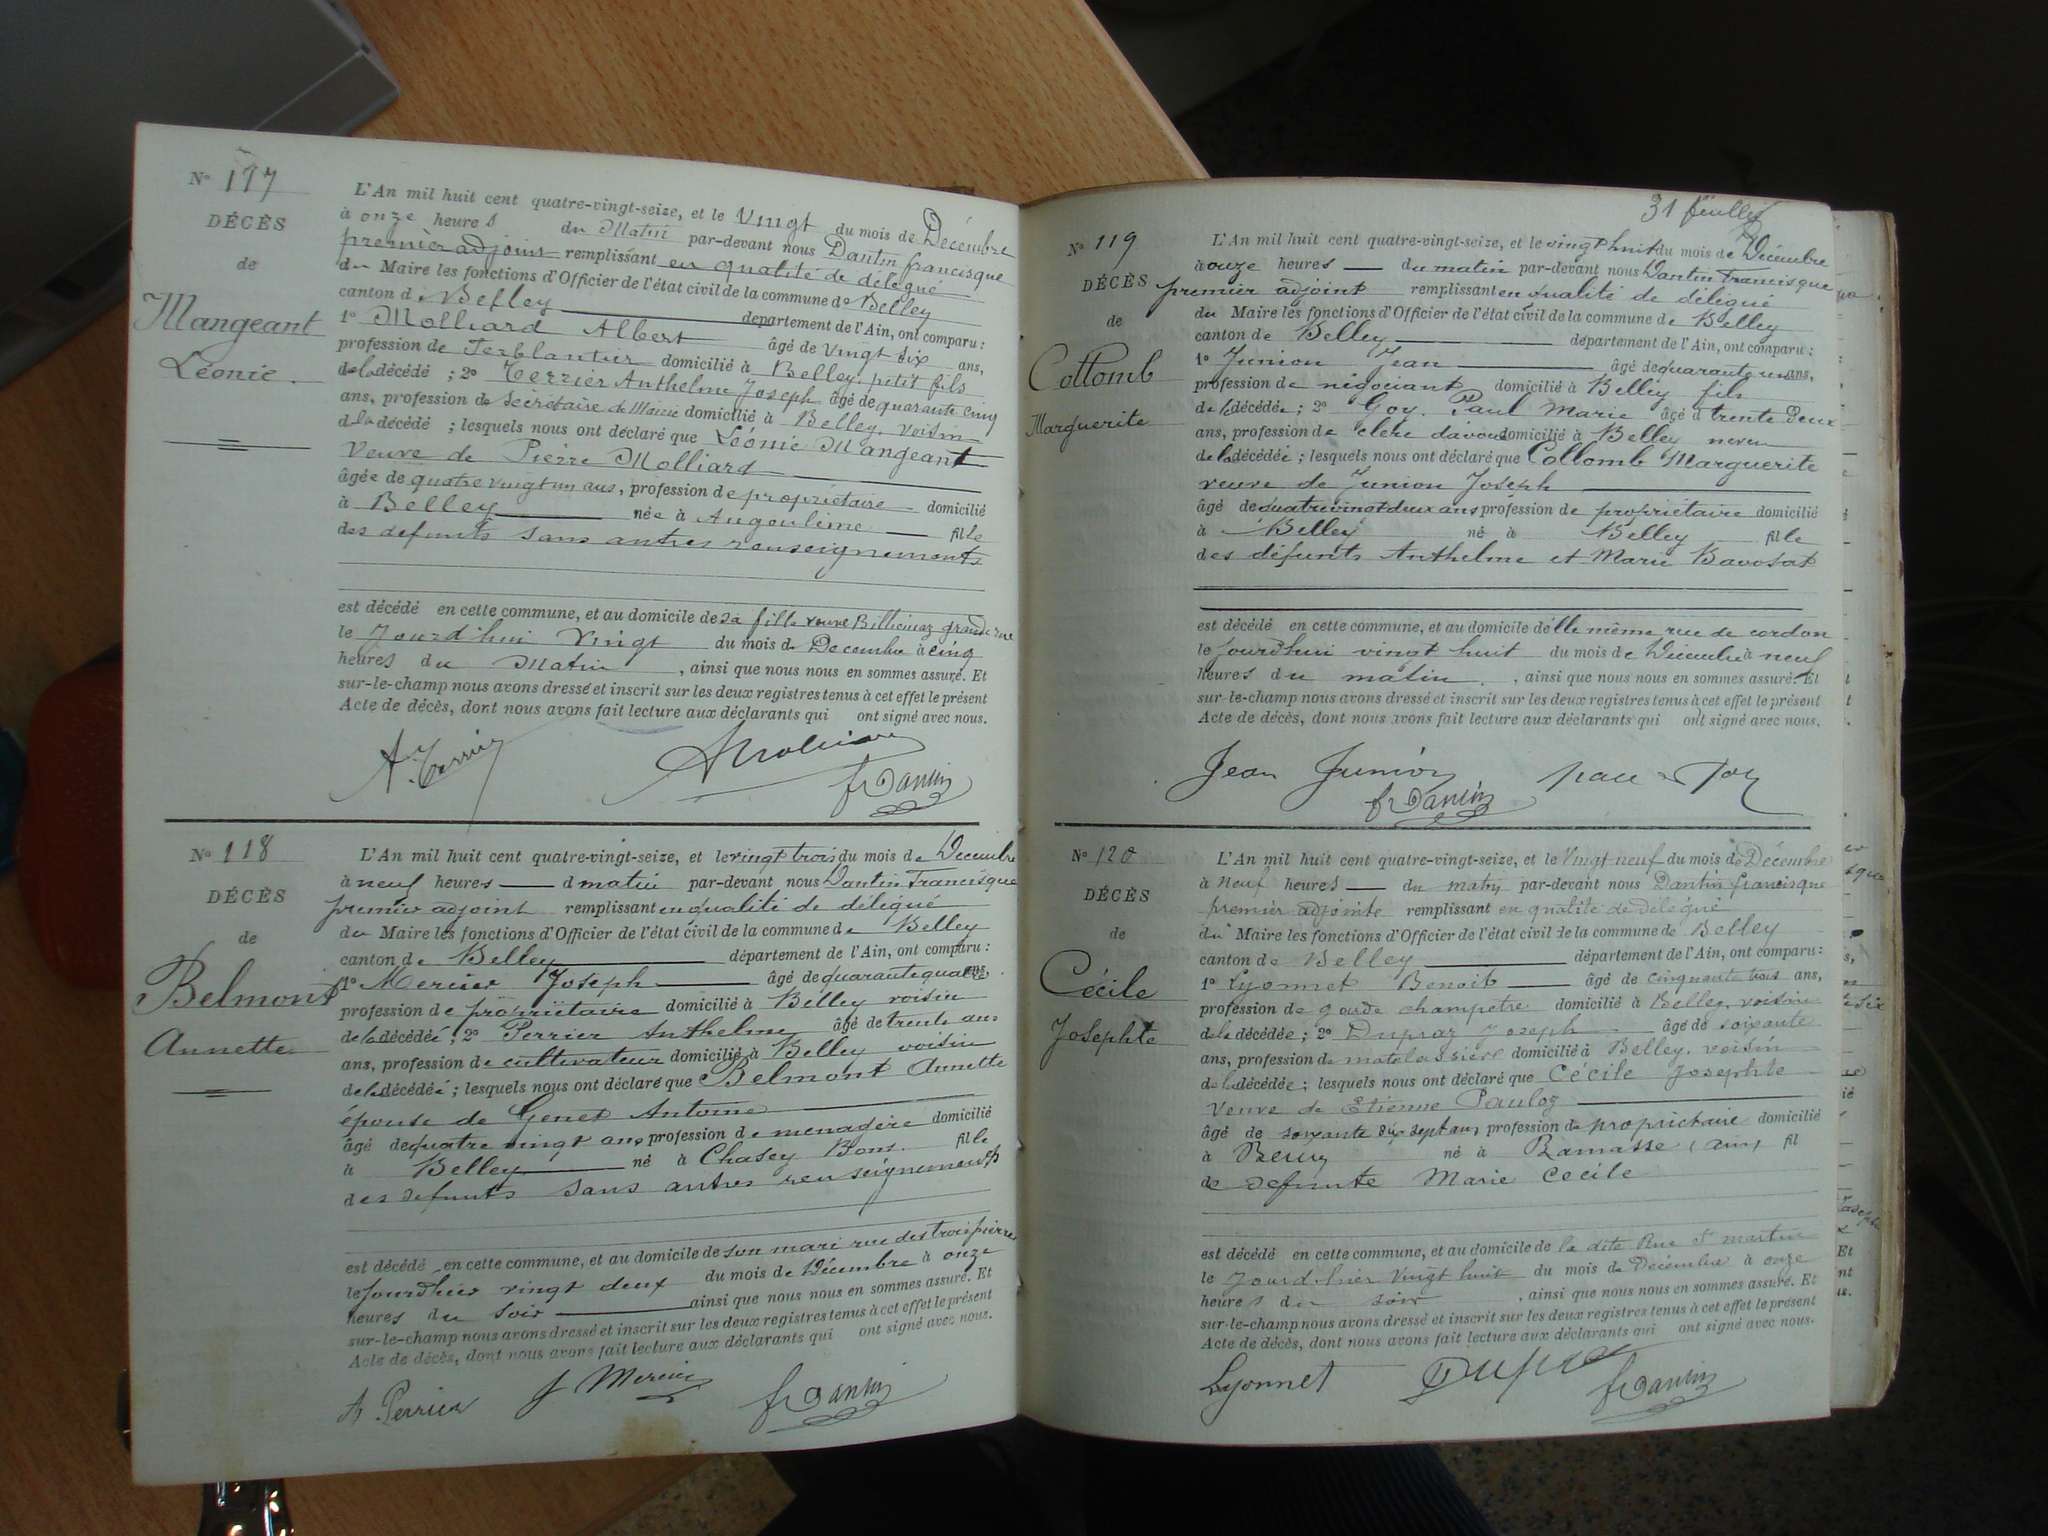 N° 117
DÉCÈS
de
Mangeant
Léonie.
L'An mil huit cent quatre-vingt-seize, et le Vingt du mois de Décembre
à onze heures du Matin par-devant nous Dantin francisque
premier adjoint remplissant en qualité de délégué
du Maire les fonctions d'Officier de l'état civil de la commune de Belley
canton de Belley département de l'Ain, ont comparu :
1° Molliard Albert âgé de vingt six ans,
profession de Ferblantier domicilié à Belley. petit fils
de la décédé ; 2° Terrier Anthelme Joseph âgé de quarante cinq
ans, profession de Secrétaire de Mairie domicilié à Belley, voisin
de la décédé ; lesquels nous ont déclaré que Léonie Mangeant
Veuve de Pierre Molliard
âgée de quatre vingt un ans, profession de propriétaire domicilié
à Belley née à Angoulême fille
des défunts sans autres renseignements
est décédé en cette commune, et au domicile de sa fille veuve Billiemaz grande rue
le Jourd'hui vingt du mois de Decembre à cinq
heures du Matin, ainsi que nous nous en sommes assuré. Et
sur-le-champ nous avons dressé et inscrit sur les deux registres tenus à cet effet le présent
Acte de décès, dont nous avons fait lecture aux déclarants qui ont signé avec nous.
A. Terrier
fr Dantin
N° 118
DÉCÈS
de
Belmont
Annette
L'An mil huit cent quatre-vingt-seize, et le vingt trois du mois de Décembre
à neuf heures d matin par-devant nous Dantin Francisque
premier adjoint remplissant en qualité de délégué
du Maire les fonctions d'Officier de l'état civil de la commune de Belley
canton de Belley département de l'Ain, ont comparu :
1° Mercier Joseph âgé de quarante quatre ans,
profession de propriétaire domicilié à Belley voisin
de la décédée ; 2° Perrier Anthelme âgé de trente ans
ans, profession de cultivateur domicilié à Belley voisin
de la décédée ; lesquels nous ont déclaré que Belmont Annette
épouse de Genet Antoine
âgé de quatre vingt ans profession de menagère domicilié
à Belley né à Chasey Bons fille
des defunts sans autres renseignements
est décédé en cette commune, et au domicile de son mari rue des trois pierres
le jourd'hier vingt deux du mois de Décembre à onze
heures du soir ainsi que nous nous en sommes assuré. Et
sur-le-champ nous avons dressé et inscrit sur les deux registres tenus à cet effet le présent
Acte de décès, dont nous avons fait lecture aux déclarants qui ont signé avec nous.
A. Perrier J Mercier fr Dantin
31 feuillet
N° 119
DÉCÈS
de
Collomb
Marguerite
L'An mil huit cent quatre-vingt-seize, et le vingt huit du mois de Décembre
à onze heures du matin par-devant nous Dantin Francisque
premier adjoint remplissant en qualité de délégué
du Maire les fonctions d'Officier de l'état civil de la commune de Belley
canton de Belley département de l'Ain, ont comparu :
1° Junion Jean âgé de quarante un ans,
profession de négociant domicilié à Belley fils
de la décédée ; 2° Goy. Paul Marie âgé de trente deux
ans, profession de clerc d'avoué domicilié à Belley neveu
de la décédée ; lesquels nous ont déclaré que Collomb Marguerite
veuve de Junion Joseph
âgé de quatre vingt deux ans profession de propriétaire domicilié
à Belley né à Belley fille
des défunts Anthelme et Marie Bavosat
est décédé en cette commune, et au domicile d'elle même rue de cordon
le jourd'hui vingt huit du mois de Décembre à neuf
heures du matin. , ainsi que nous nous en sommes assuré. Et
sur-le-champ nous avons dressé et inscrit sur les deux registres tenus à cet effet le présent
Acte de décès, dont nous avons fait lecture aux déclarants qui ont signé avec nous.
Jean Junion
fr Dantin
N° 120
DÉCÈS
de
Cécile
Josephte
L'An mil huit cent quatre-vingt-seize, et le Vingt neuf du mois de Décembre
à neuf heures du matin par-devant nous Dantin francisque
premier adjointe remplissant en qualité de délégué
du Maire les fonctions d'Officier de l'état civil de la commune de Belley
canton de Belley département de l'Ain, ont comparu :
1° Lyonnet Benoit âgé de cinquante trois ans,
profession de garde champetre domicilié à Belley. voisin
de la décédée ; 2° Dupraz Joseph âgé de soixante
ans, profession de matelassière domicilié à Belley. voisin
de la décédée ; lesquels nous ont déclaré que Cécile Josephte
Veuve de Etienne Pauloz
âgé de soixante dix sept ans, profession de propriétaire domicilié
à Belley né à Ramasse (ain) fil
de défunte Marie Cécile
est décédé en cette commune, et au domicile de la dite Rue St martin
le Jourd'hier vingt huit du mois de Décembre à onze
heures du soir , ainsi que nous nous en sommes assuré. Et
sur-le-champ nous avons dressé et inscrit sur les deux registres tenus à cet effet le présent
Acte de décès, dont nous avons fait lecture aux déclarants qui ont signé avec nous.
Lyonnet Dupraz fr Dantin